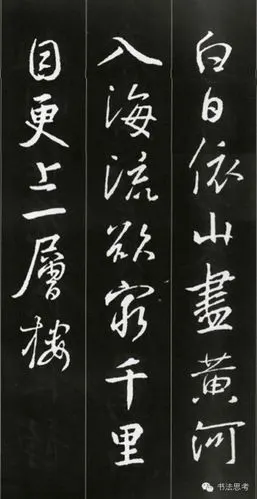 白日依山盡黃河
入海流欲窮千里
目更上一層樓
书法思考